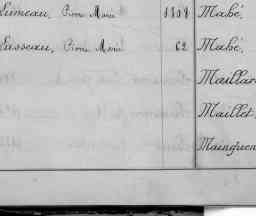 Lumeau, Pierre Marie 1808 Mahé,
Lasseau, Pierre Marie 62 Mahé,
Maillar
Maillet,
Mainguen